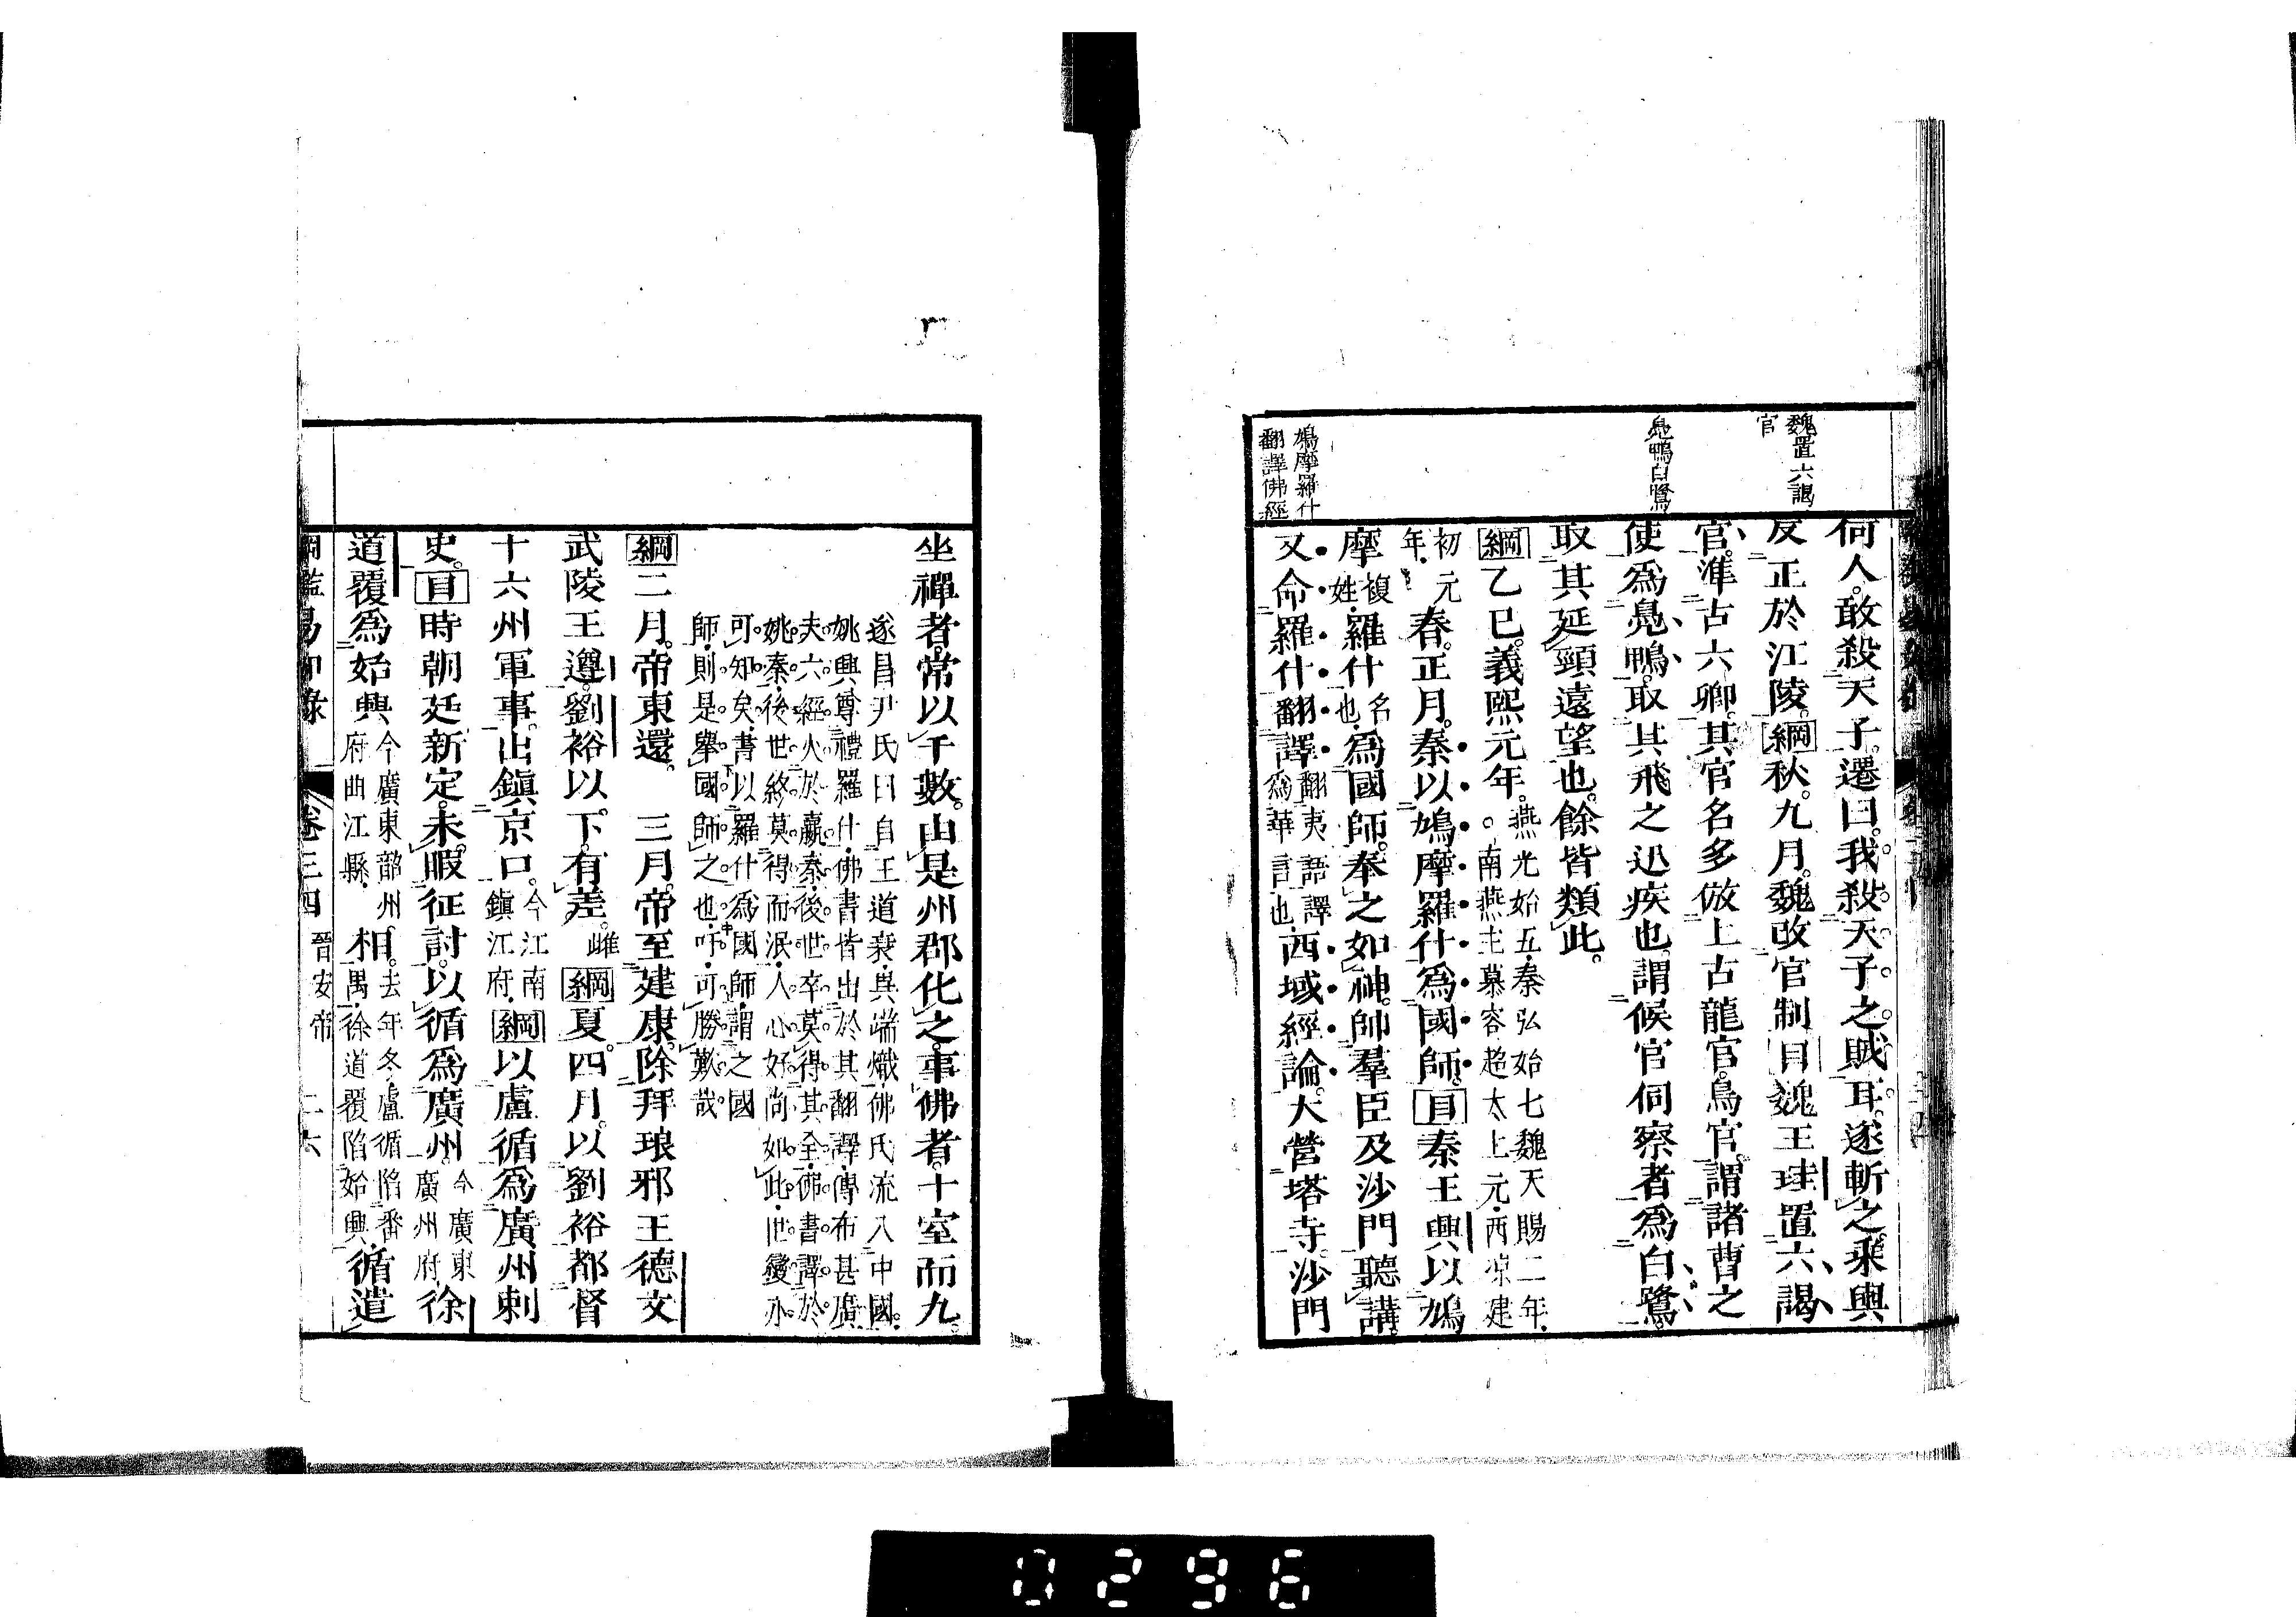 魏置六謁
官
鳧鴨白鷺
鳩摩羅什
翻譯佛經
何人。敢殺天子。遷曰。我殺天子之賊耳。遂斬之。乘輿
反正於江陵。綱秋。九月。魏改官制目魏王珪置六謁
官。準古六卿。其官名多倣上古龍官。鳥官。謂諸曹之
使爲鳧鴨。取其飛之迅疾也。謂候官伺察者爲白鷺。
取其延頸遠望也。餘皆類此。
綱乙巳。義熙元年。燕光始五。秦弘始七。魏天賜二年。
○南燕主慕容超太上元。西凉建
初元
年。春。正月。秦以鳩摩羅什爲國師。目秦王興以鳩
摩複
姓。羅什名
也。爲國師。奉之如神。帥羣臣及沙門聽講。
又命羅什翻譯翻夷語譯
爲華言也。西域經論。大營塔寺。沙門
坐禪者。常以千數。由是州郡化之。事佛者。十室而九。
遂昌尹氏曰自王道衰。異端熾。佛氏流入中國。
姚興尊禮羅什。佛書皆出於其翻譯。傳布甚廣。
夫六經火於嬴秦。後世卒莫得其全。佛書譯於
姚秦。後世終莫得而泯。人心好尚如此。世變亦
可知矣。書以羅什爲國師。謂之國
師。則是舉國師之也。吁。可勝歎哉
綱二月。帝東還。　三月。帝至建康。除拜琅邪王德文
武陵王遵。劉裕以下。有差。雌綱夏。四月。以劉裕都督
十六州軍事。出鎭京口。今江南
鎭江府。綱以盧循爲廣州刺
史。目時朝廷新定。未暇征討。以循爲廣州。今廣東
廣州府徐
道覆爲始興今廣東韶州
府曲江縣。相。去年冬。盧循陷番
禺。徐道覆陷始興。循遣
綱鑑易知錄　卷三四　晉安帝　二六
0296